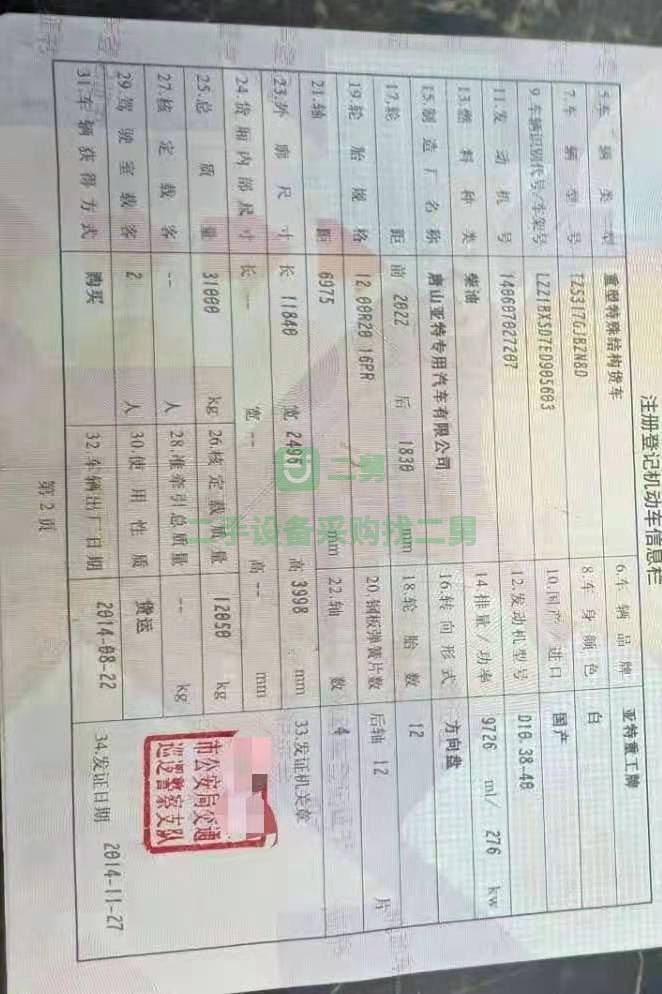 注册登记机动车信息栏
5.车辆类型 重型特殊结构货车 6.车辆品牌 亚特重工牌
7.车辆型号 TZ5317GJBZN8D 8.车身颜色 白
9.车辆识别代号/车架号 LZZ1BXSD7ED905603 10.国产/进口 国产
11.发动机号 140607027207 12.发动机型号 D10.38-40
13.燃料种类 柴油 14.排量/功率 9726 ml/ 276 kw
15.制造厂名称 唐山亚特专用汽车有限公司 16.转向形式 方向盘
17.轮距 前 2022 后 1830 mm 18.轮胎数 12
19.轮胎规格 12.00R20 16PR 20.钢板弹簧片数 后轴 12 片
21.轴距 6975 mm 22.轴数 4
23.外廓尺寸 长 11840 宽 2496 高 3998 mm 33.发证机关章
24.货厢内部尺寸 长 -- 宽 -- 高 -- mm
25.总质量 31000 kg 26.核定载质量 12050 kg
27.核定载客 -- 人 28.准牵引总质量 -- kg
29.驾驶室载客 2 人 30.使用性质 货运
31.车辆获得方式 购买 32.车辆出厂日期 2014-08-22 34.发证日期 2014-11-27
市公安局交通
巡逻警察支队
第 2 页
二男
二手设备采购找二男